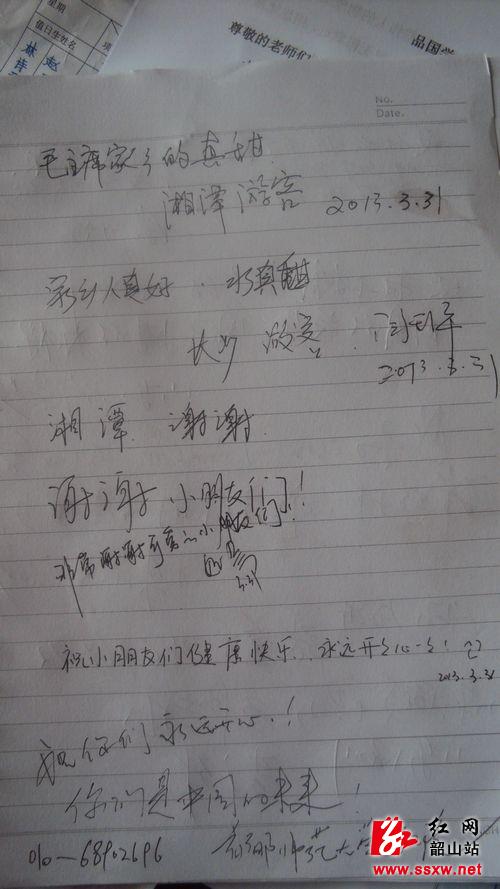 星期
值日生姓名
尊敬的老师们
品国学
No.
Date.
毛主席家乡的真甜
湘潭游客 2013.3.31
家乡人真好.水真甜
长沙 游客
2013.3.31
湘潭 谢谢
谢谢小朋友们!!
非常谢谢可爱的小朋友们!
3.31
祝小朋友们健康快乐..永远开心!
2013.3.31
祝你们永远开心!!
你们是中国的未来!
010—68902696 首都师范大学
红网
韶山站
www.ssxw.net